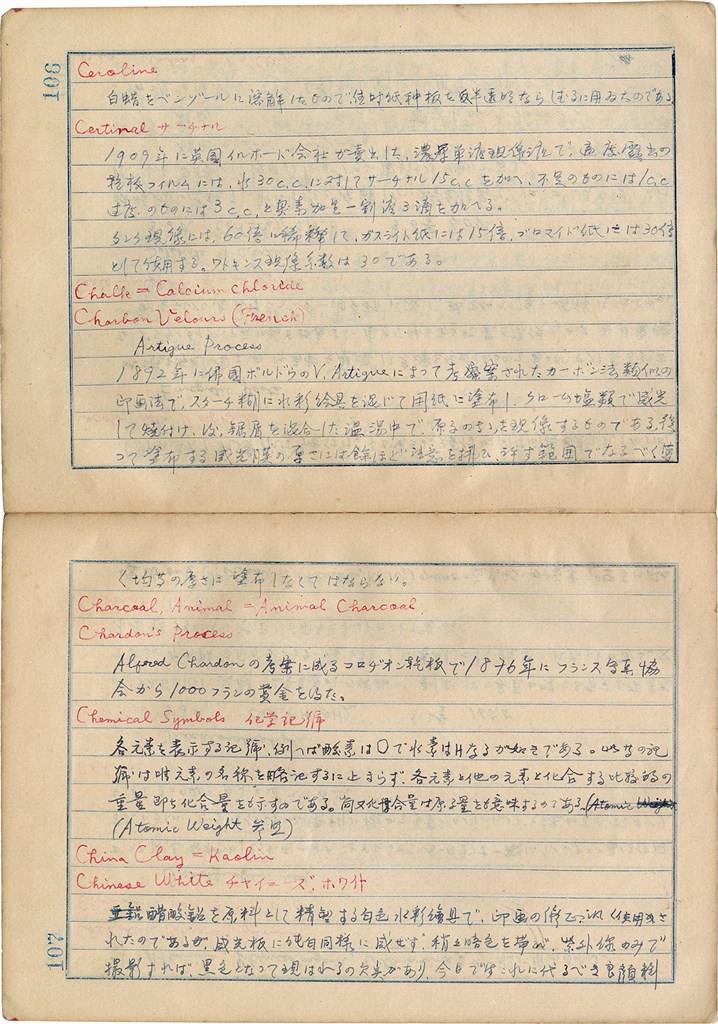 106
Ceroline
白蝋をベンゾールに溶解したもので佳時紙種板を半透明ならしむるに用ゐたのである
Certinal サーチナル
1909年に英國イルホード会社が賣出した、濃厚單液現像液で、適度露出の
乾板フィルムには、水30c.c.に対してサーチナル15c.cを加へ、不足のものには1c.c
過度のものには3c.c.と臭素加里一割液3滴を加へる。
タンク現像には、60倍に稀釋して、ガスライト紙には15倍、ブロマイド紙には30倍
として使用する。ワトキンス現像系数は30である。
Chalk = Calcium chloride
Charbon Velours (French)
Artigue Process
1892年に佛國ボルドウのV. Artigueによって考案されたカーボン法類似の
印画法で、スターチ糊に水彩絵具を混じて用紙に塗布し、クローム塩類で感光
して焼付け、後、鋸屑を混合した温湯中で、現像するものである。従
って塗布する感光膜の厚さには余ほど注意を拂ひ、許す範囲でなるべく薄
く均等の厚さに塗布しなくてはならない。
Charcoal, Animal = Animal Charcoal.
Chardon's Process
Alfred Chardonの考案に成るコロヂオン乾板で1876年にフランス写真協
会から1000フランの賞金を得た。
Chemical Symbols 化学記號
各元素を表示する記號、例へば酸素はOで水素はHなるが如きである。此等の記
號は唯元素の名称を略記するに止まらず、各元素と他の元素と化合する比較的の
重量即ち化合量をも示すのである。尚又化合量は原子量をも意味するのである (Atomic Weight
(Atomic Weight 参照)
China Clay = Kaolin
Chinese White チャイニーズ、ホワイト
醋酸鉛を原料として精製する白色水彩絵具で、印画の修正に使用さ
れたのであるが、感光板に純白同様に感ぜず、稍々暗色を帯び、紫外線のみで
撮影すれば、黒色となって現はれるの欠点があり、今日ではこれに代るべき良顔料
107